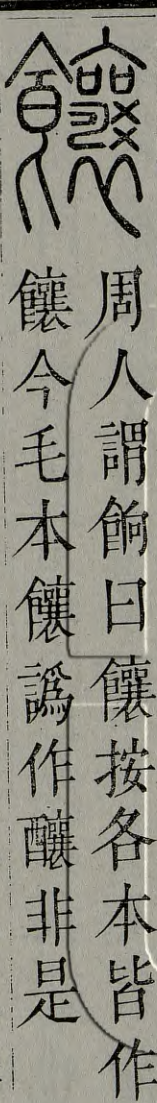 饟
周人謂餉曰饟按各本皆作
饟今毛本饟譌作釀非是